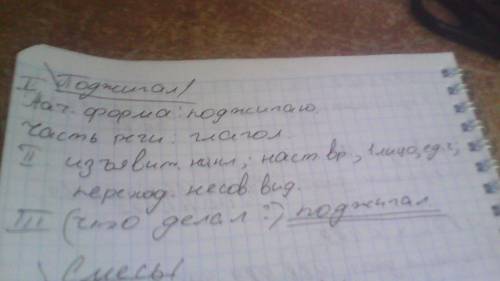 I \Поджигал/
Нач. форма: поджигаю.
Часть речи: глагол.
II изъявит. накл., наст. вр., 1 лицо, ед. ч.,
переход. несов. вид.
III (что делал?) поджигал
\Смесь/